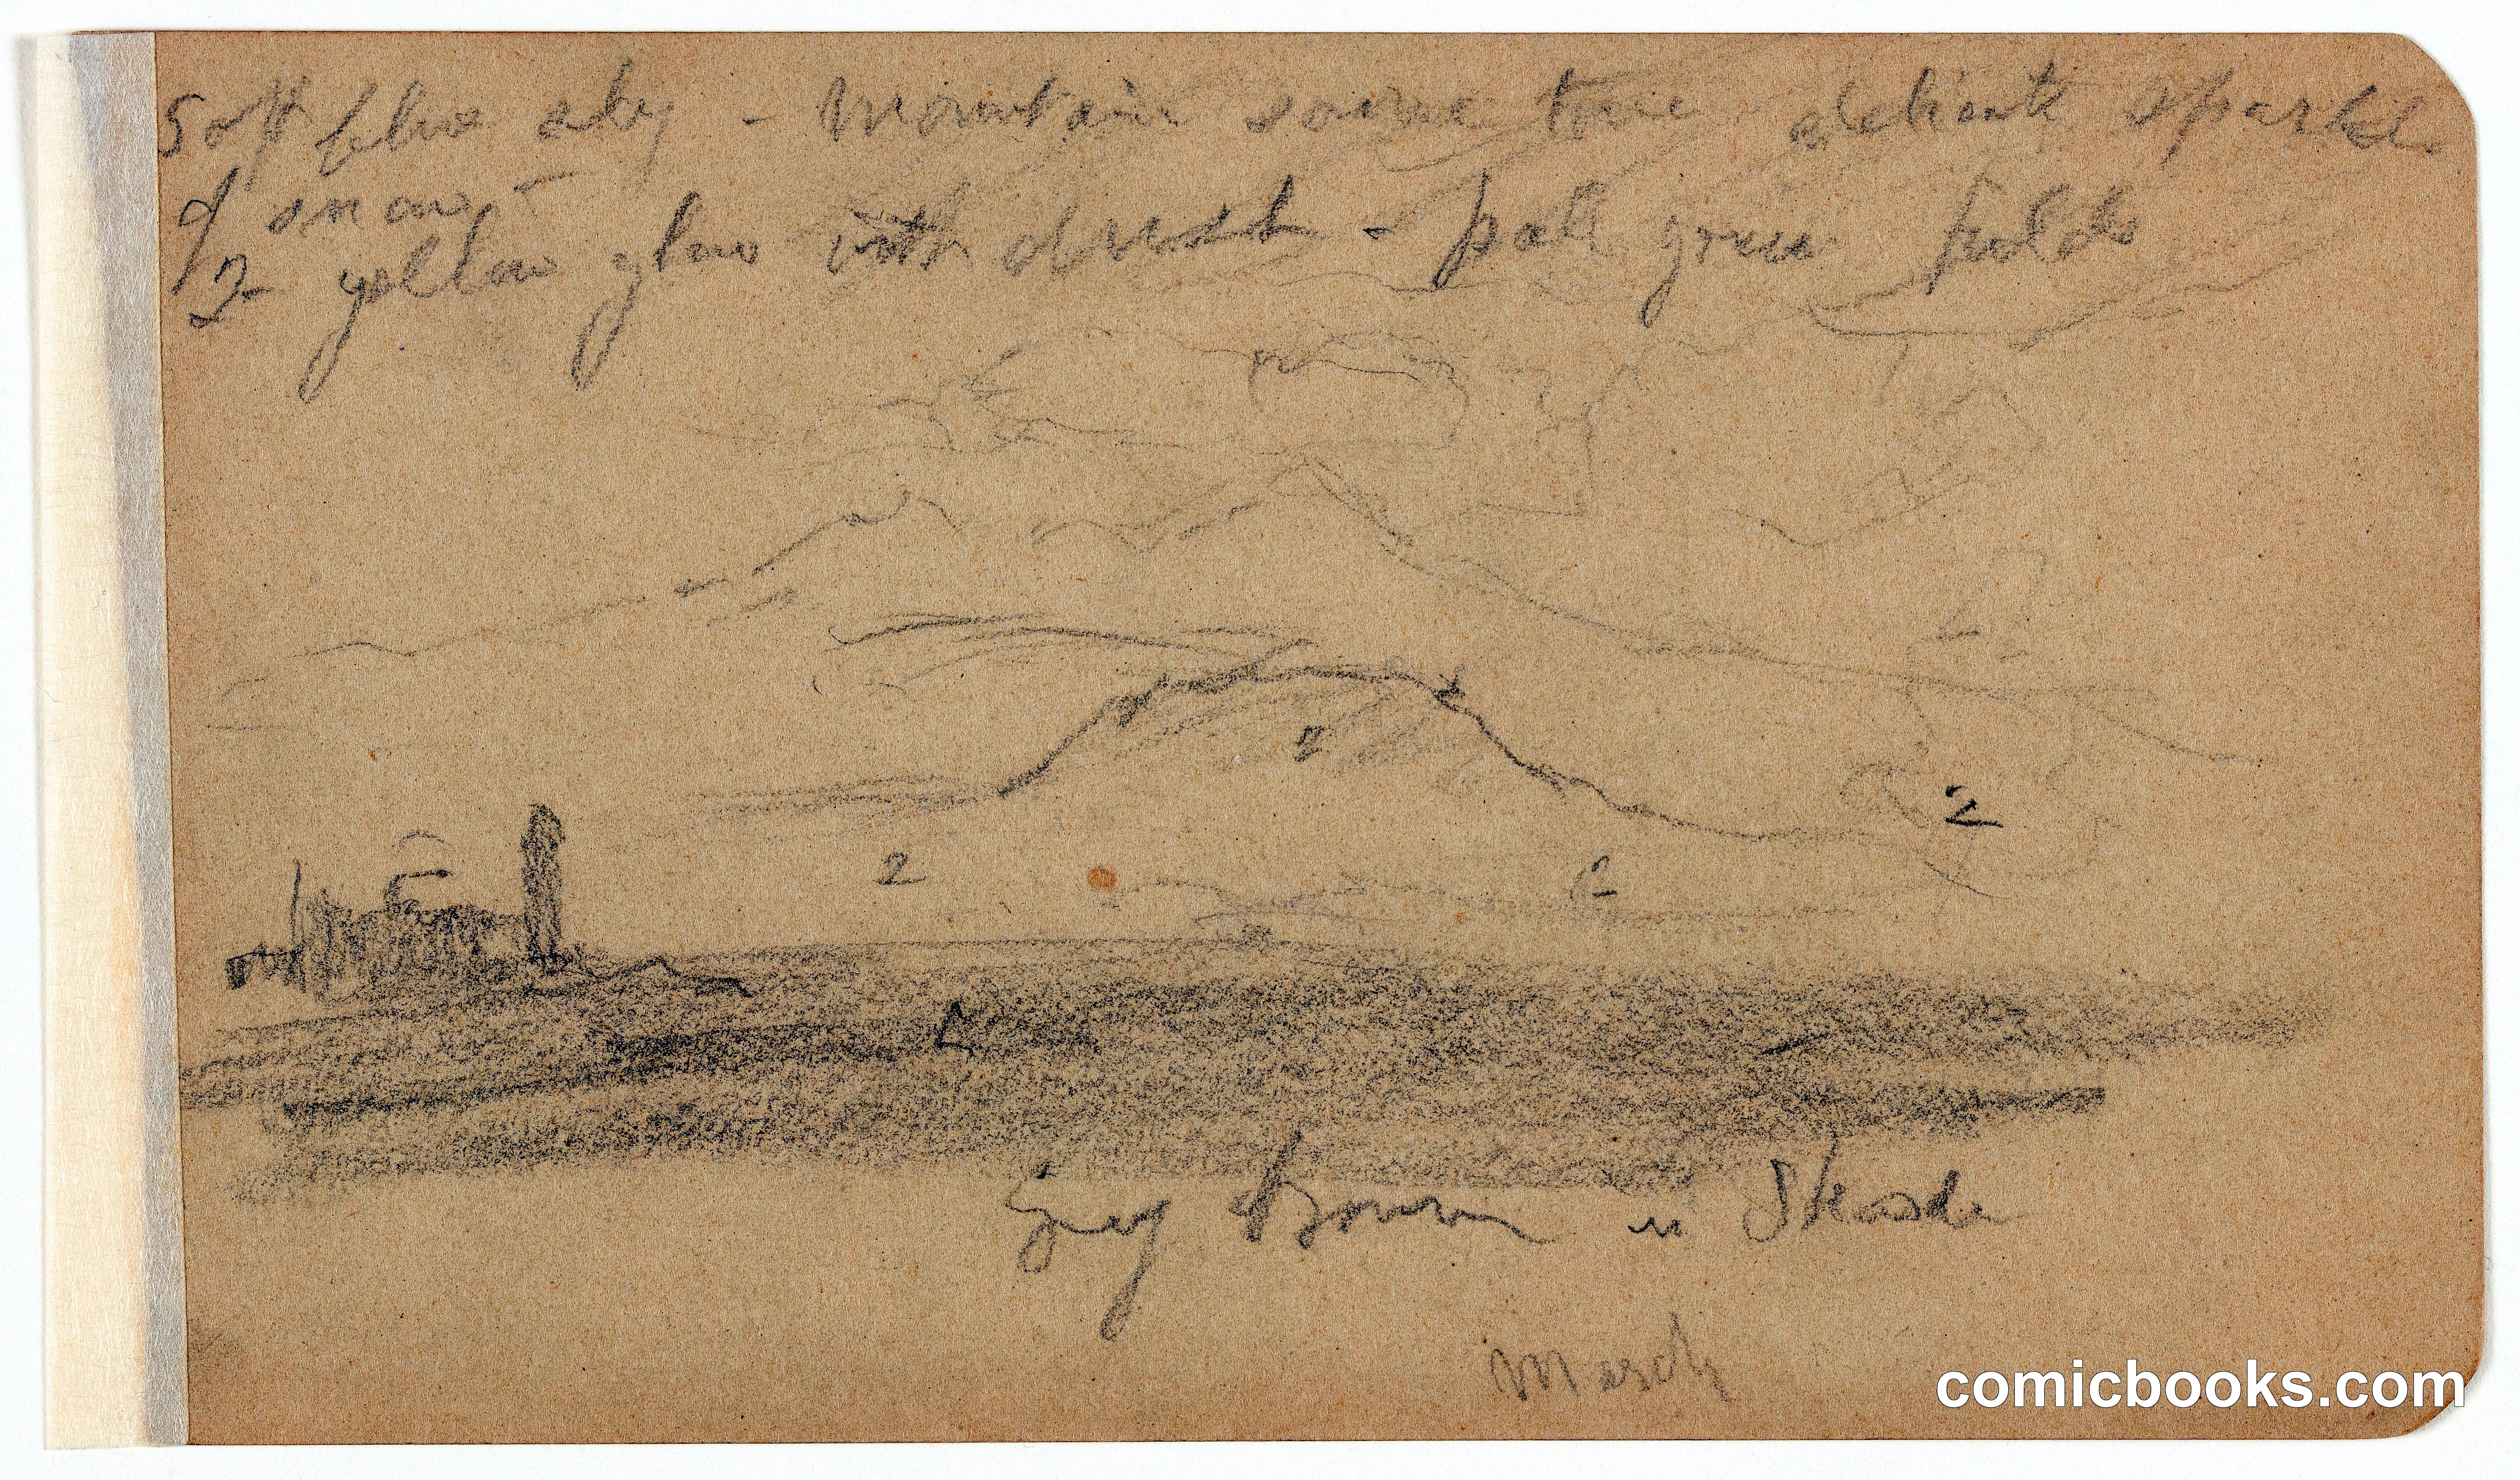 Soft blue sky - Mountain same tone delicate sparkle
of snow -
2 yellow glow with dust - pale green fields
2
2
2
2
2
Grey Brown in Shade
March
comicbooks.com